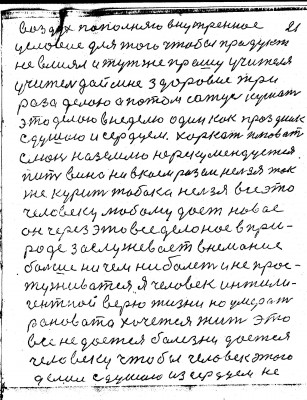 21
воздух пополняю внутренное
условие для того чтобы продукт
не влиял и тут же прошу учителя
учитель дай мне здоровие три
раза делаю а потом сажус кушат
это делаю в неделю один как праздник
с душою и сердцем. харкат плеват
слюну на землю нерекумендуется
пит вино ни в коем разе нелзя так
же курит табака нелзя все это
человеку любому дает новае
он через это все делоное в при-
роде заслужевает внемание
болше ни чем ни болет и не прос-
туживатся. Я человек интили-
гентной верю жизни но умерат
рановато хочется жит это
все не дается болезни дается
человеку чтобы человек этого
делал с душою из сердцем не